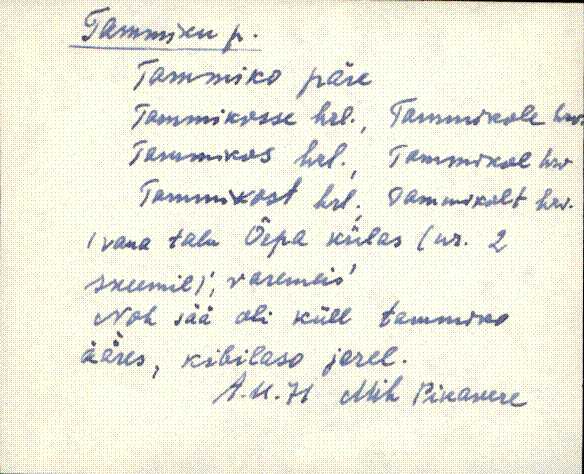 Tammiku p.
Tammiko päre
Tammikosse hrl., Tammikole hrv.
Tammikos hrl., Tammikol hrv
Tammikost hrl., Tammikolt hrv.
'vana talu Õepa külas (nr. 2
skeemil)', varemeis'
Noh sää oli küll tammiko
ääres, kibilaso jorel.
Mih Pikavere